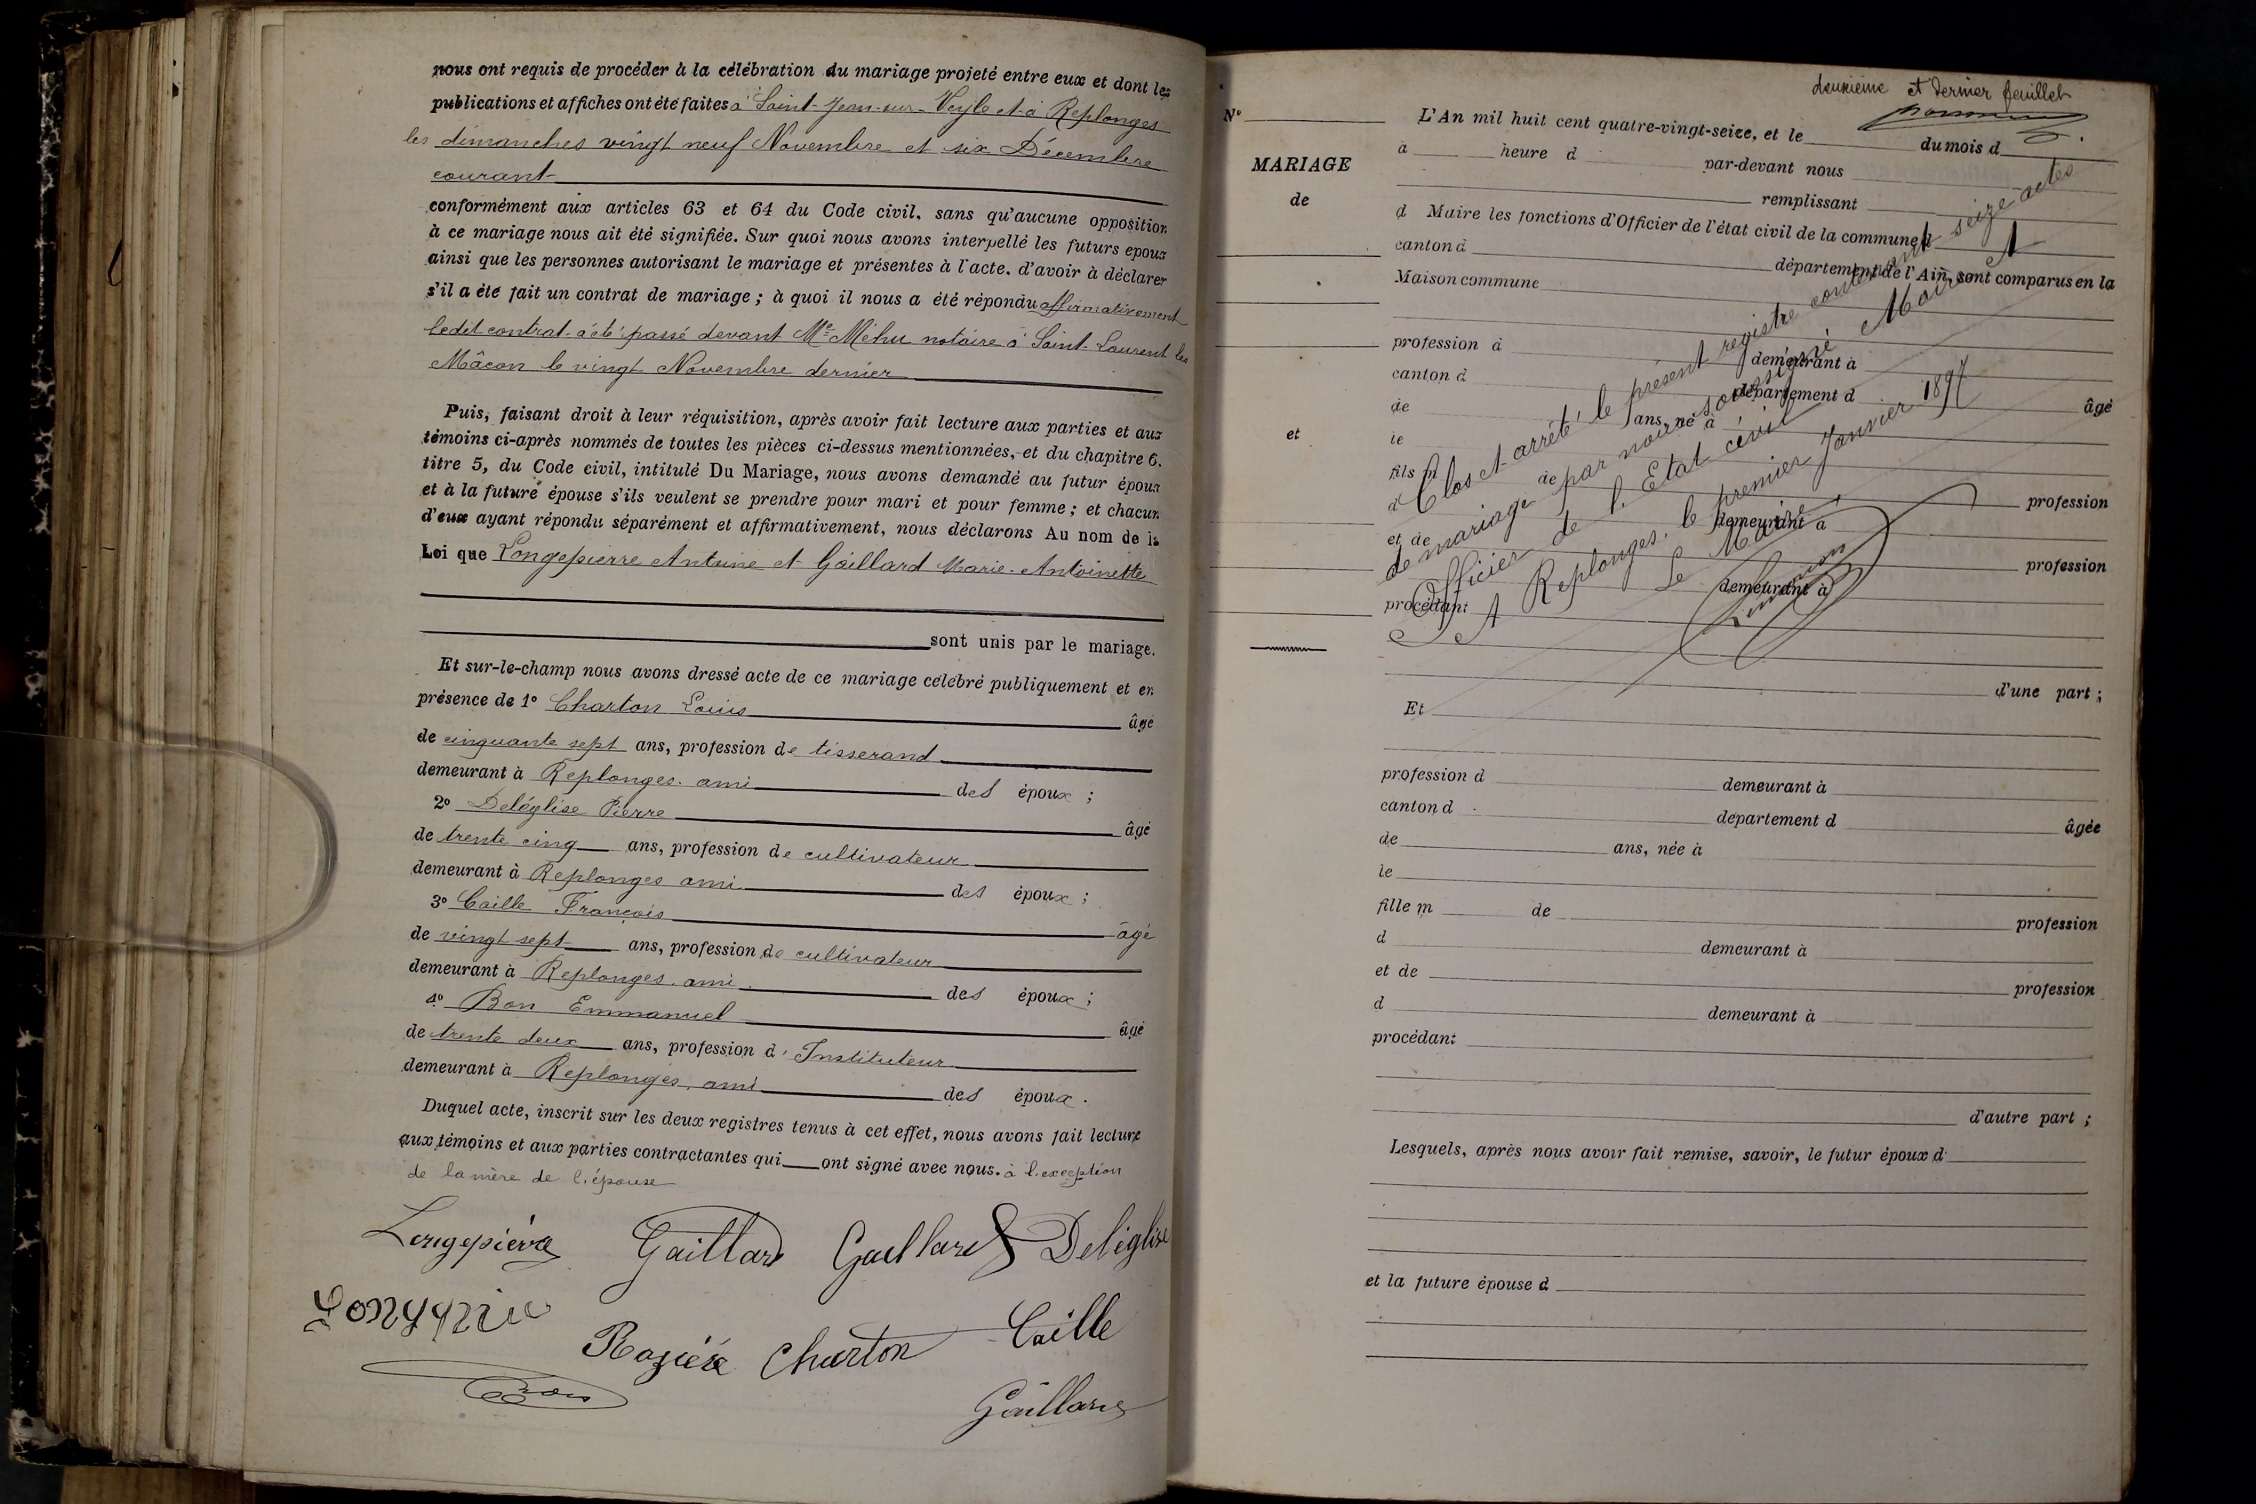 nous ont requis de procéder à la célébration du mariage projeté entre eux et dont les
publications et affiches ont été faites à Saint-Jean-sur-Veyle et à Replonges
les dimanches vingt neuf Novembre et six Décembre
courant
conformément aux articles 63 et 64 du Code civil, sans qu'aucune opposition
à ce mariage nous ait été signifiée. Sur quoi nous avons interpellé les futurs epoux
ainsi que les personnes autorisant le mariage et présentes à l'acte, d'avoir à déclarer
s'il a été fait un contrat de mariage ; à quoi il nous a été répondu affirmativement
ledit contrat a été passé devant Me Méhu notaire à Saint-Laurent les
Mâcon le vingt Novembre dernier
Puis, faisant droit à leur réquisition, après avoir fait lecture aux parties et aux
témoins ci-après nommés de toutes les pièces ci-dessus mentionnées, et du chapitre 6,
titre 5, du Code civil, intitulé Du Mariage, nous avons demandé au futur époux
et à la future épouse s'ils veulent se prendre pour mari et pour femme ; et chacun
d'eux ayant répondu séparément et affirmativement, nous déclarons Au nom de la
Loi que Longepierre Antoine et Gaillard Marie-Antoinette
sont unis par le mariage.
Et sur-le-champ nous avons dressé acte de ce mariage célébré publiquement et en
présence de 1º Charton Louis âgé
de cinquante sept ans, profession de tisserand
demeurant à Replonges ami des époux ;
2º Deléglise Pierre âgé
de trente cinq ans, profession de cultivateur
demeurant à Replonges ami des époux ;
3º Caille François âgé
de vingt sept ans, profession de cultivateur
demeurant à Replonges ami des époux ;
4º Bon Emmanuel âgé
de trente deux ans, profession d'Instituteur
demeurant à Replonges ami des époux.
Duquel acte, inscrit sur les deux registres tenus à cet effet, nous avons fait lecture
aux témoins et aux parties contractantes qui ont signé avec nous. à l'exception
de la mère de l'épouse
Longepierre Gaillard Gaillard Deléglise
Charton Caille
Gaillard
deuxième et dernier feuillet
Nº
MARIAGE
de
et
L'An mil huit cent quatre-vingt-seize, et le du mois d
à heure d par-devant nous
remplissant
d Maire les fonctions d'Officier de l'état civil de la commune d
canton d département de l'Ain, sont comparus en la
Maison commune
profession d demeurant à
canton d département d âgé
de ans, né à
le
fils m de profession
d demeurant à
et de profession
d demeurant à
procédant
d'une part ;
Clos et arrêté le présent registre contenant seize actes
de mariage par nous soussigné Maire et
Officier de l'Etat civil
A Replonges, le premier Janvier 1897
Le Maire,
Et
profession d demeurant à
canton d département d âgée
de ans, née à
le
fille m de profession
d demeurant à
et de profession
d demeurant à
procédant
d'autre part ;
Lesquels, après nous avoir fait remise, savoir, le futur époux d
et la future épouse d